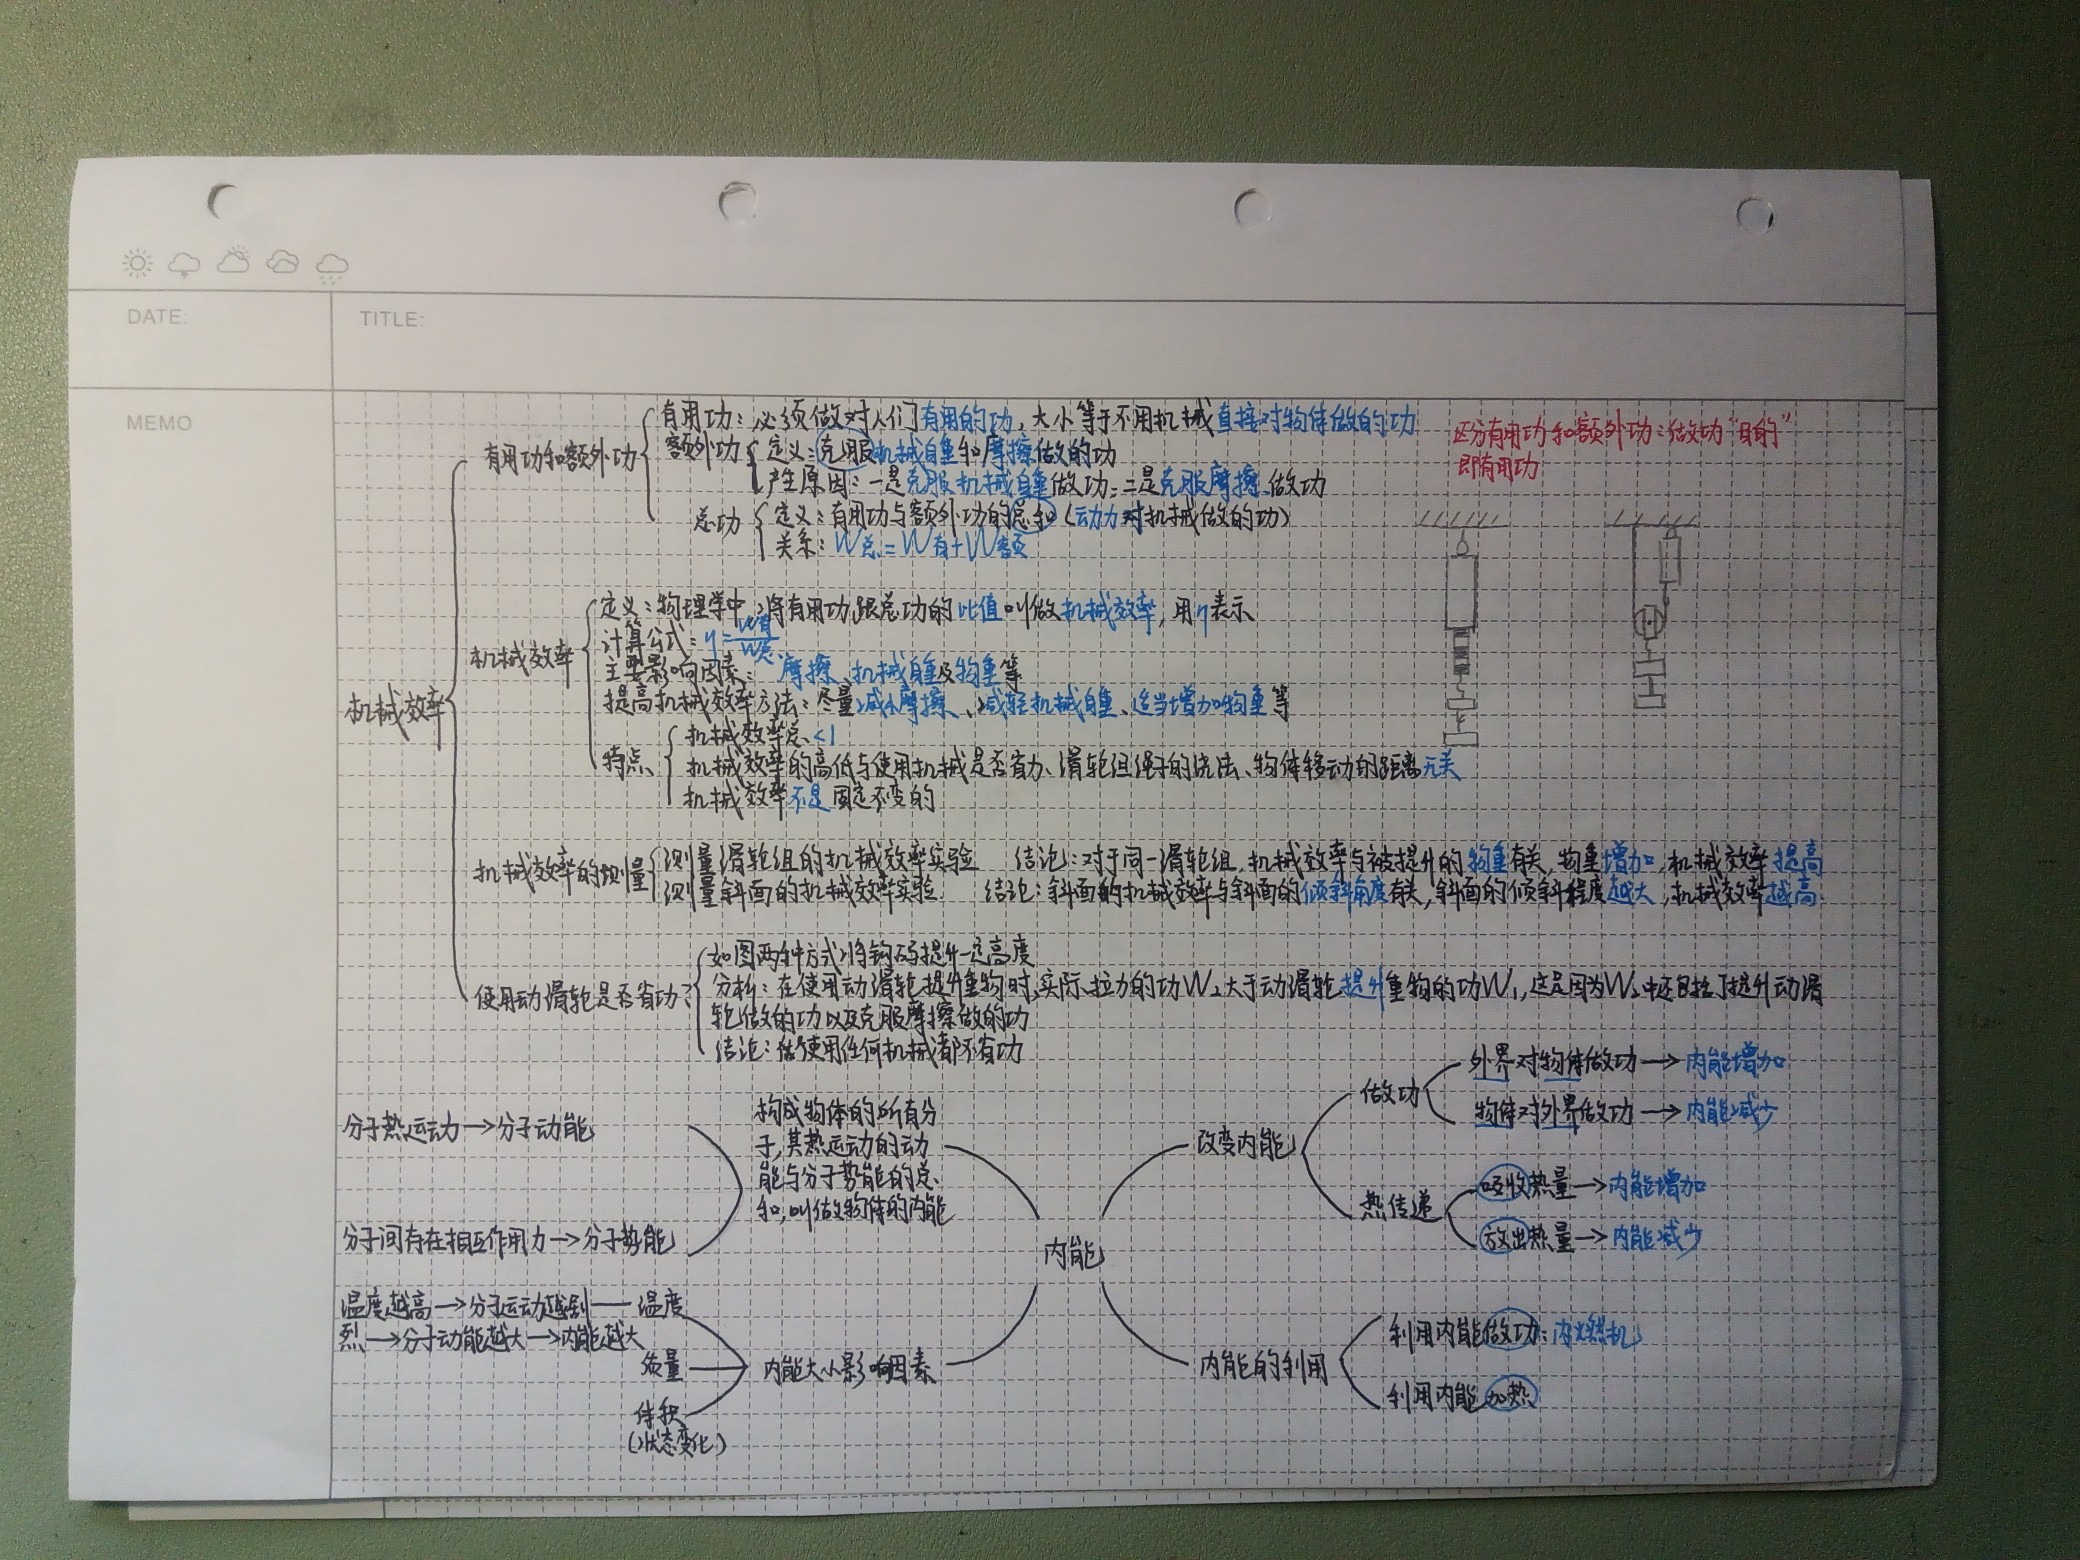 DATE:
TITLE:
MEMO
有用功:必须做对人们有用的功,大小等于不用机械直接对物体做的功
区分有用功和额外功:做功“目的”
即有用功
有用功和额外功
额外功
定义:克服机械自重和摩擦做的功
产生原因:一是克服机械自重做功;二是克服摩擦做功
总功
定义:有用功与额外功的总和(动力对机械做的功)
关系:W总=W有+W额
机械效率
机械效率
定义:物理学中,将有用功跟总功的比值叫做机械效率,用η表示
计算公式:η=W有/W总
主要影响因素:摩擦、机械自重及物重等
提高机械效率方法:尽量减小摩擦、减轻机械自重、适当增加物重等
特点
机械效率总<1
机械效率的高低与使用机械是否省力、滑轮组绳子的绕法、物体移动的距离无关
机械效率不是固定不变的
机械效率的测量
测量滑轮组的机械效率实验 结论:对于同一滑轮组,机械效率与被提升的物重有关,物重增加,机械效率提高
测量斜面的机械效率实验 结论:斜面的机械效率与斜面的倾斜角度有关,斜面的倾斜程度越大,机械效率越高
使用动滑轮是否省功?
如图两种方式将钩码提升一定高度
分析:在使用动滑轮提升重物时,实际拉力的功W₂大于动滑轮提升重物的功W₁,这是因为W₂中还包括了提升动滑
轮做的功以及克服摩擦做的功
结论:使用任何机械都不省功
分子热运动→分子动能
分子间存在相互作用力→分子势能
构成物体的所有分
子,其热运动的动
能与分子势能的总
和,叫做物体的内能
内能
温度越高→分子运动越剧
烈→分子动能越大→内能越大
温度
质量
体积
(状态变化)
内能大小影响因素
改变内能
做功
外界对物体做功→内能增加
物体对外界做功→内能减少
热传递
吸收热量→内能增加
放出热量→内能减少
内能的利用
利用内能做功:内燃机
利用内能加热